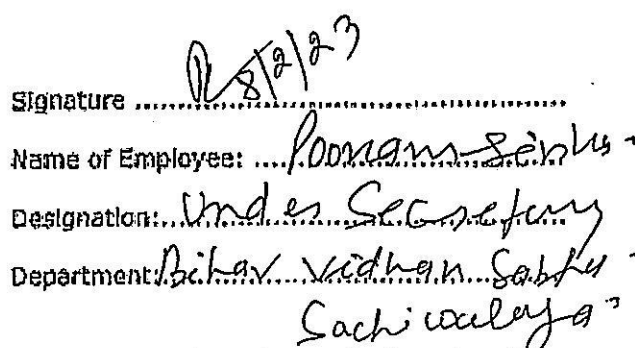 Signature 8/2/23
Name of Employee: Poonam Sinha
Designation: Under Secretary
Department: Bihar Vidhan Sabha
Sachiwalaya